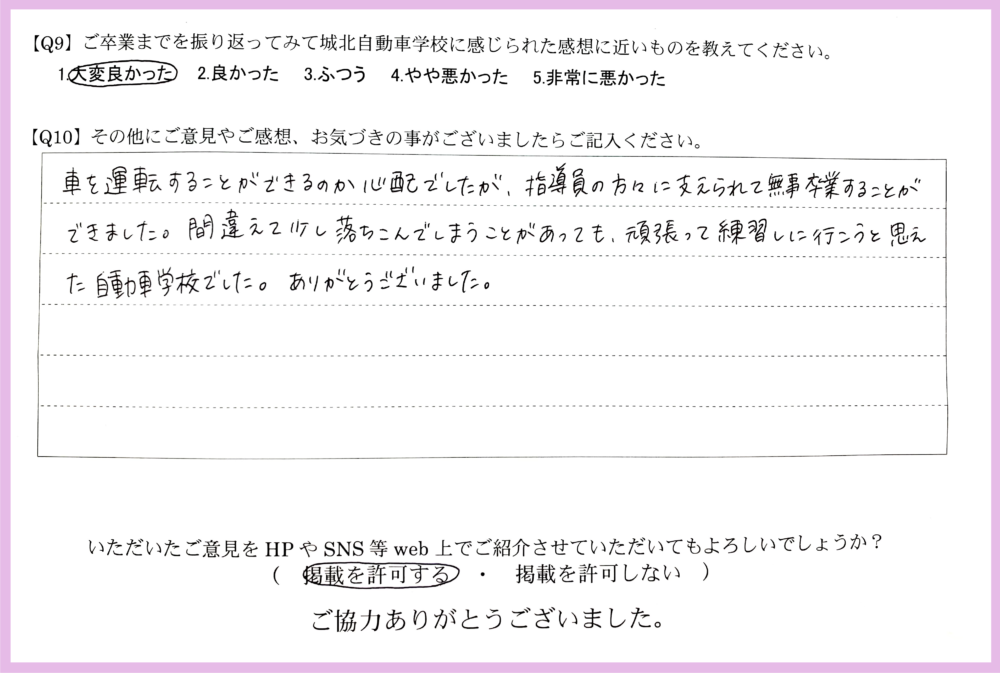 【Q9】ご卒業までを振り返ってみて城北自動車学校に感じられた感想に近いものを教えてください。
1.大変良かった 2.良かった 3.ふつう 4.やや悪かった 5.非常に悪かった
【Q10】その他にご意見やご感想、お気づきの事がございましたらご記入ください。
車を運転することができるのか心配でしたが、指導員の方々に支えられて無事卒業することが
できました。間違えて少し落ちこんでしまうことがあっても、頑張って練習しに行こうと思え
た自動車学校でした。ありがとうございました。
いただいたご意見をHPやSNS等web上でご紹介させていただいてもよろしいでしょうか？
（ 掲載を許可する ・ 掲載を許可しない ）
ご協力ありがとうございました。